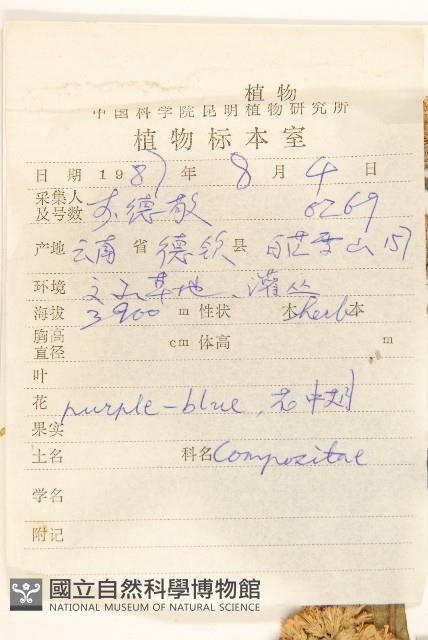 植物
中国科学院昆明植物研究所
植物标本室
日期 1987 年 8 月 4 日
采集人
及号数 李德敬 0269
产地 云南 省 德钦 县 白茫雪山
环境 草地、灌丛
海拔 3900 m 性状 本 herb 本
胸高
直径 cm 体高 m
叶
花 purple-blue,
果实
土名 科名 Compositae
学名
附记
國立自然科學博物館
NATIONAL MUSEUM OF NATURAL SCIENCE